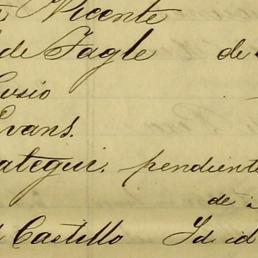 Vicente
de Tagle de
usio
Evans.
ategui. pendiente
de
Castillo Id id